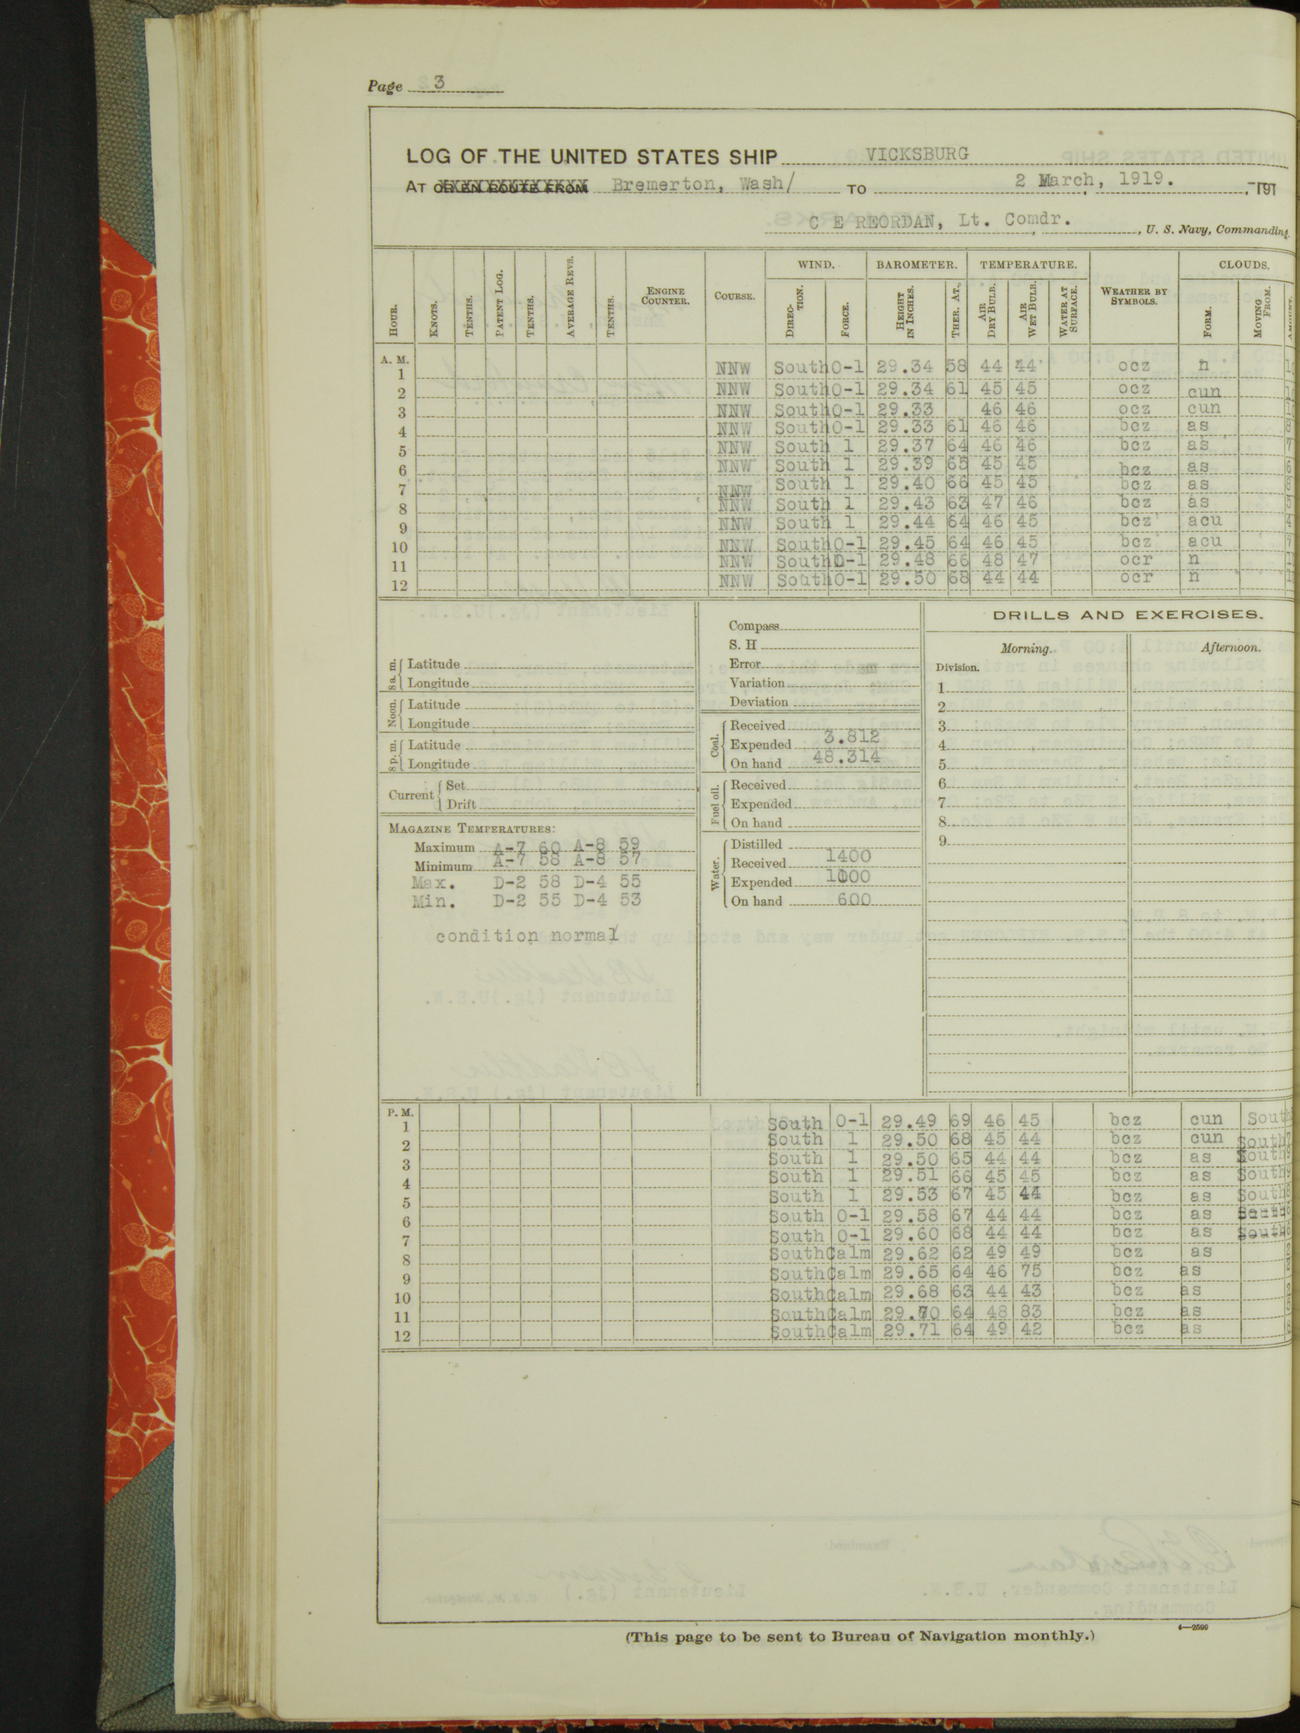 Page 3
LOG OF THE UNITED STATES SHIP VICKSBURG
AT OR EN ROUTE FROM Bremerton, Wash/ TO 2 March, 1919. , 191
C E REORDAN, Lt. Comdr. , U. S. Navy, Commanding.
HOUR. KNOTS. TENTHS. PATENT LOG. TENTHS. AVERAGE REVS. TENTHS. ENGINE COUNTER. COURSE. WIND. DIRECTION. FORCE. BAROMETER. HEIGHT IN INCHES. THER. AT. TEMPERATURE. AIR DRY BULB. AIR WET BULB. WATER AT SURFACE. WEATHER BY SYMBOLS. CLOUDS. FORM. MOVING FROM. AMOUNT.
A. M.
1 NNW South 0-1 29.34 58 44 44 ocz n
2 NNW South 0-1 29.34 61 45 45 ocz cun
3 NNW South 0-1 29.33 46 46 ocz cun
4 NNW South 0-1 29.33 61 46 46 bcz as
5 NNW South 1 29.37 64 46 46 bcz as
6 NNW South 1 29.39 65 45 45 bcz as
7 NNW South 1 29.40 66 45 45 bcz as
8 NNW South 1 29.43 63 47 46 bcz as
9 NNW South 1 29.44 64 46 45 bcz acu
10 NNW South 0-1 29.45 64 46 45 bcz acu
11 NNW South 0-1 29.48 66 48 47 ocr n
12 NNW South 0-1 29.50 68 44 44 ocr n
8 a. m. Latitude
Longitude
Noon. Latitude
Longitude
8 p. m. Latitude
Longitude
Current Set
Drift
MAGAZINE TEMPERATURES:
Maximum A-7 60 A-8 59
Minimum A-7 58 A-8 57
Max. D-2 58 D-4 55
Min. D-2 55 D-4 53
condition normal
Compass
S. H
Error
Variation
Deviation
Coal. Received
Expended 3.812
On hand 48.314
Fuel oil. Received
Expended
On hand
Water. Distilled
Received 1400
Expended 1000
On hand 600
DRILLS AND EXERCISES.
Morning. Afternoon.
Division.
1
2
3
4
5
6
7
8
9
P. M.
1 South 0-1 29.49 69 46 45 bcz cun South
2 South 1 29.50 68 45 44 bcz cun South
3 South 1 29.50 65 44 44 bcz as South
4 South 1 29.51 66 45 45 bcz as South
5 South 1 29.53 67 45 44 bcz as South
6 South 0-1 29.58 67 44 44 bcz as South
7 South 0-1 29.60 68 44 44 bcz as South
8 South Calm 29.62 62 49 49 bcz as
9 South Calm 29.65 64 46 75 bcz as
10 South Calm 29.68 63 44 43 bcz as
11 South Calm 29.70 64 48 83 bcz as
12 South Calm 29.71 64 49 42 bcz as
(This page to be sent to Bureau of Navigation monthly.)